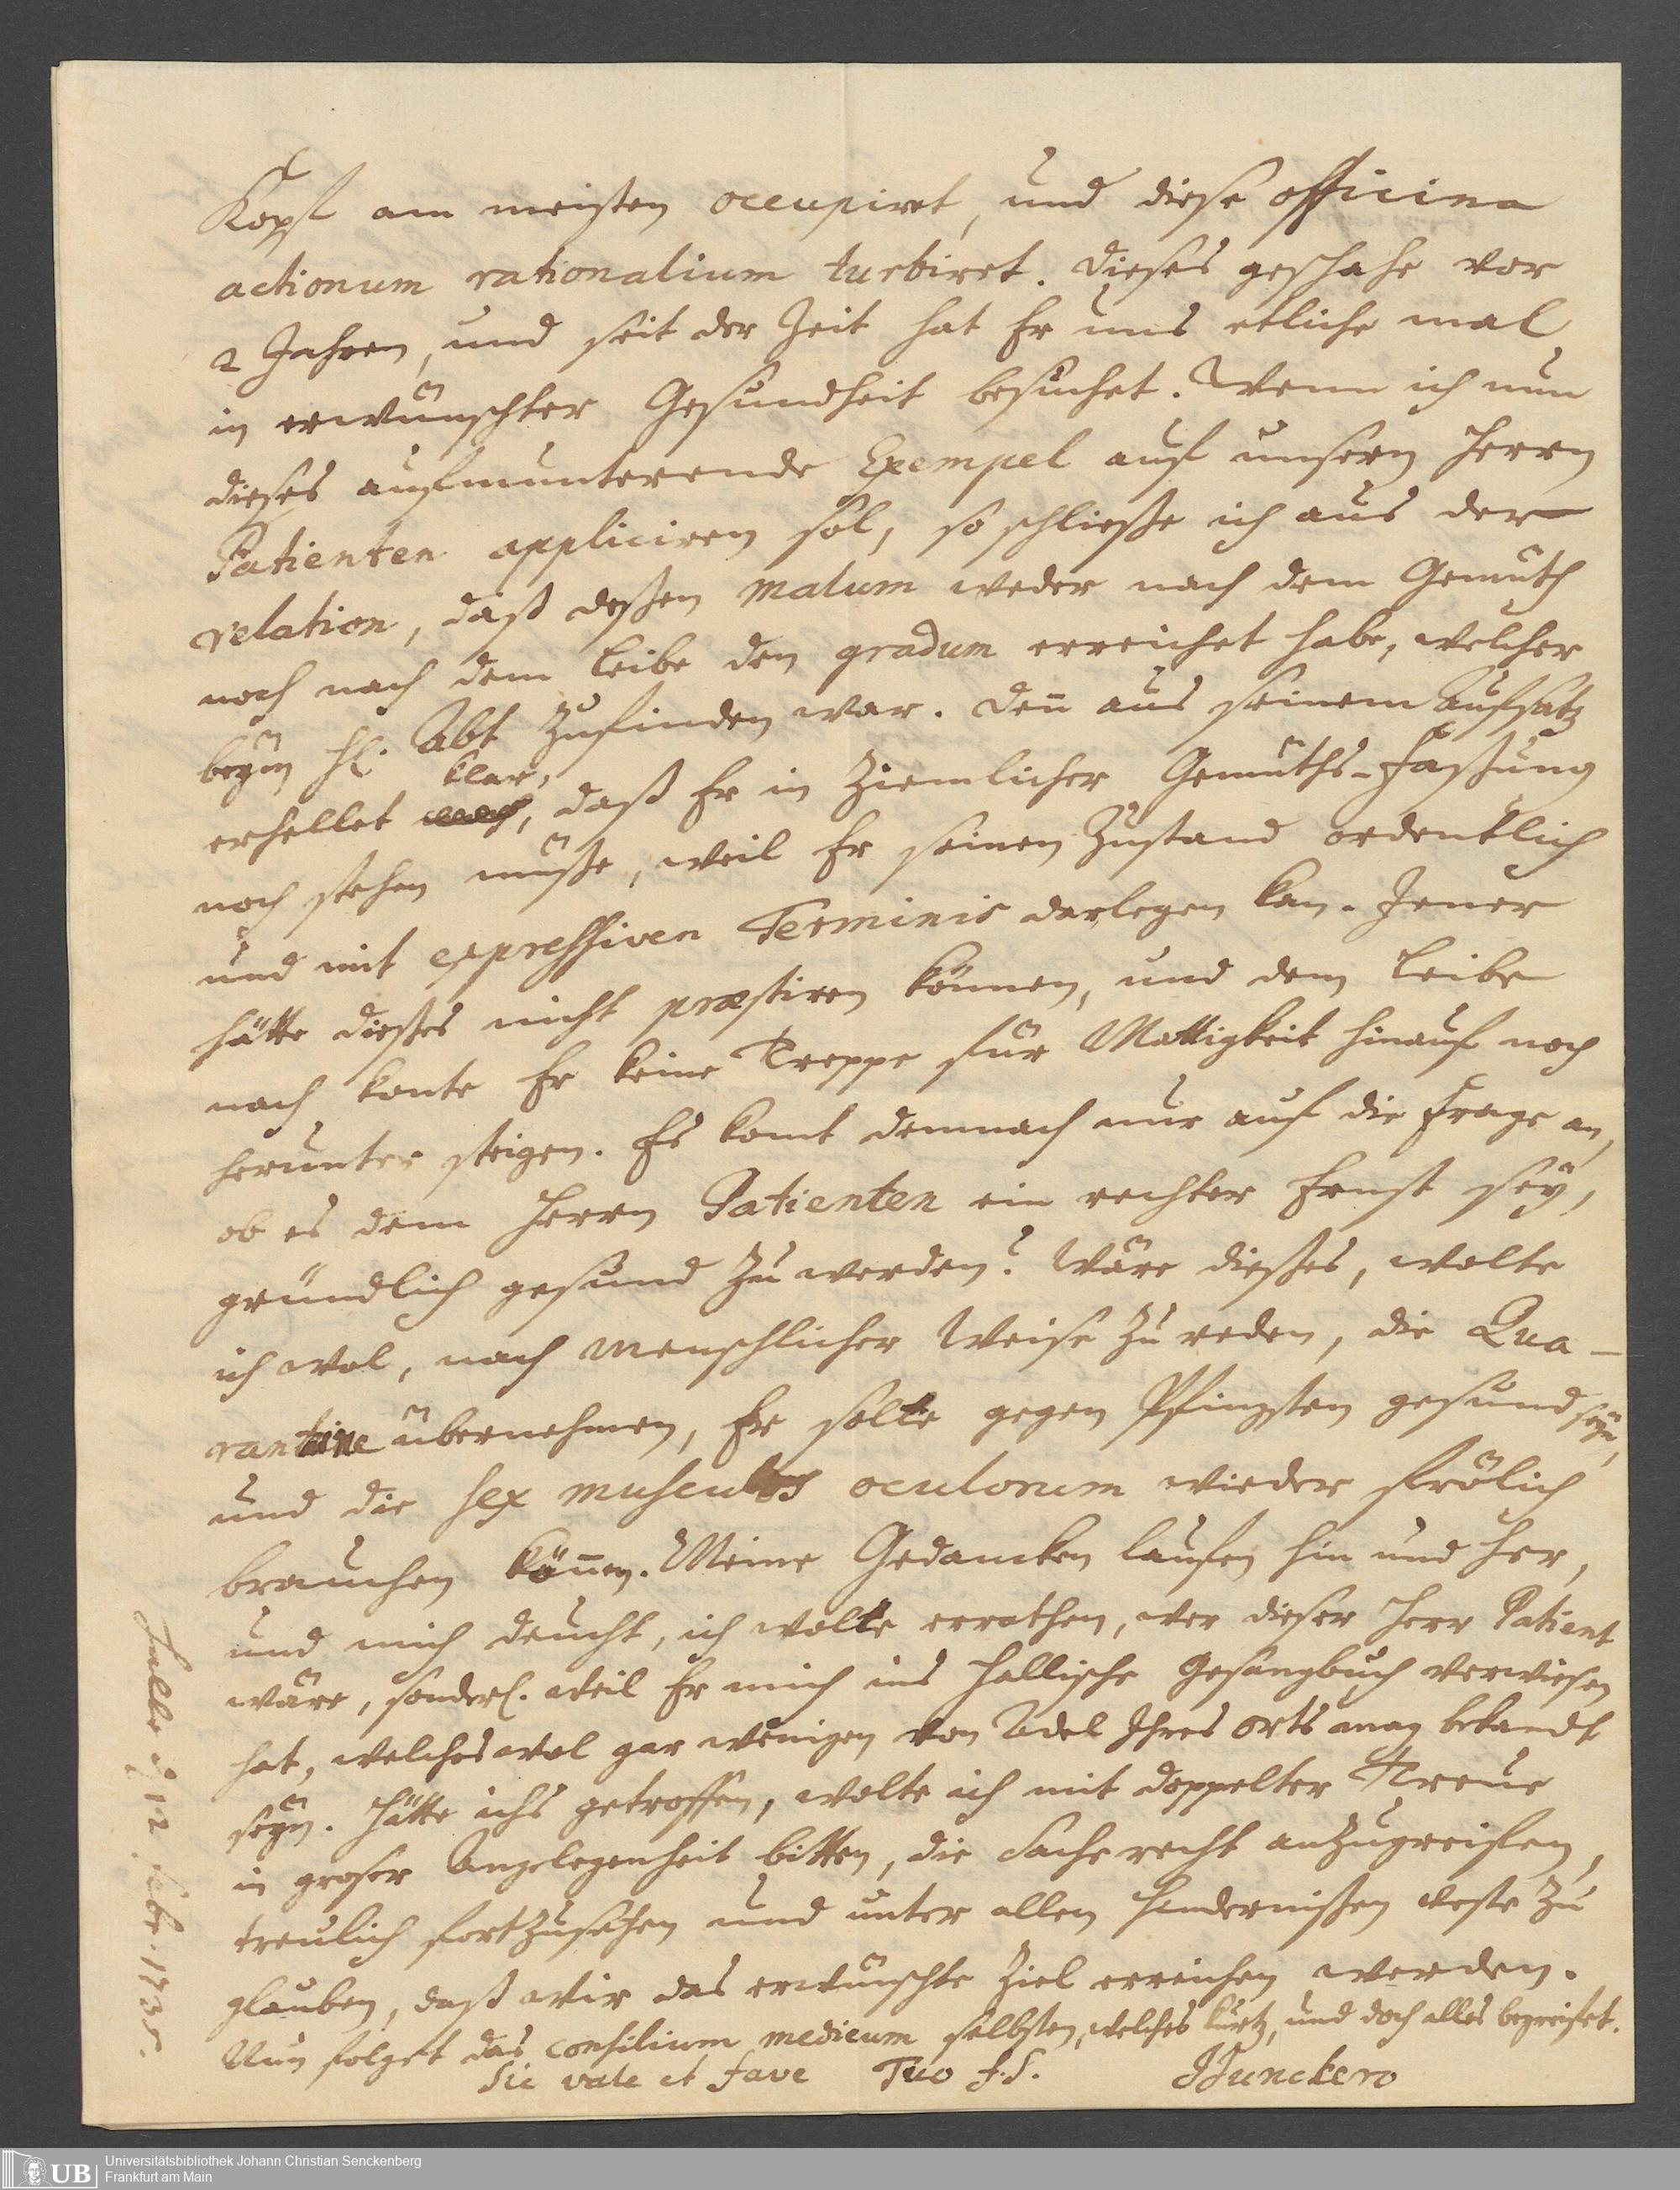 Kopf am meisten occupiret, und diese officina
actionum rationalium turbiret. Dieses geschahe vor
2 Jahren, und seit der Zeit hat Er uns etliche mal
in erwünschter Gesundheit besuchet. Wenn ich nun
dieses aufmunterende Exempel auf unsern Herrn
Patienten appliciren sol, so schließe ich aus der
relation, daß deßen malum weder nach dem Gemüth
noch nach dem Leibe den gradum erreichet habe, welcher
beym H. Abt zufinden war. Den̄ aus seinem Aufsatz
klar,
erhellet , daß Er in ziemlicher Gemüths-Faßung
noch stehen müße, weil Er seinen Zustand ordentlich
und mit expressiven Terminis darlegen kan. Jener
hätte dießes nicht præstiren können, und dem Leibe
nach konte Er keine Treppe für Mattigkeit hinauf noch
herunter steigen. Es komt demnach nur auf die Frage an,
ob es dem Herrn Patienten ein rechter Ernst sey,
gründlich gesund zu werden? Wäre dießes, wolte
ich wol, nach menschlicher Weise zu reden, die Qua-
rantine übernehmen, Er solte gegen Pfingsten gesund seyn,
und die sex musculos oculorum wieder frölich
brauchen kön̄en. Meine Gedancken laufen hin und her,
und mich deucht, ich wolte errathen, wer dieser Herr Patient
wäre, sonderl. weil Er mich ins Hallische Gesangbuch verwiesen
hat, welches wol gar wenigen von Adel Ihres Orts mag bekandt
seyn. Hätte ichs getroffen, wolte ich mit doppelter Treue
in groser Angelegenheit bitten, die Sache recht anzugreifen,
treulich fortzusetzen und unter allen Hindernißen veste zu
glauben, daß wir das erwünschte Ziel erreichen werden.
Nun folget das consilium medicum selbsten, welches kurtz, und doch alles begreifet.
Sic vale et fave Tuo J.J.
JJunckero
Halle d 12 Febr. 1735.
UB
Universitätsbibliothek Johann Christian Senckenberg
Frankfurt am Main